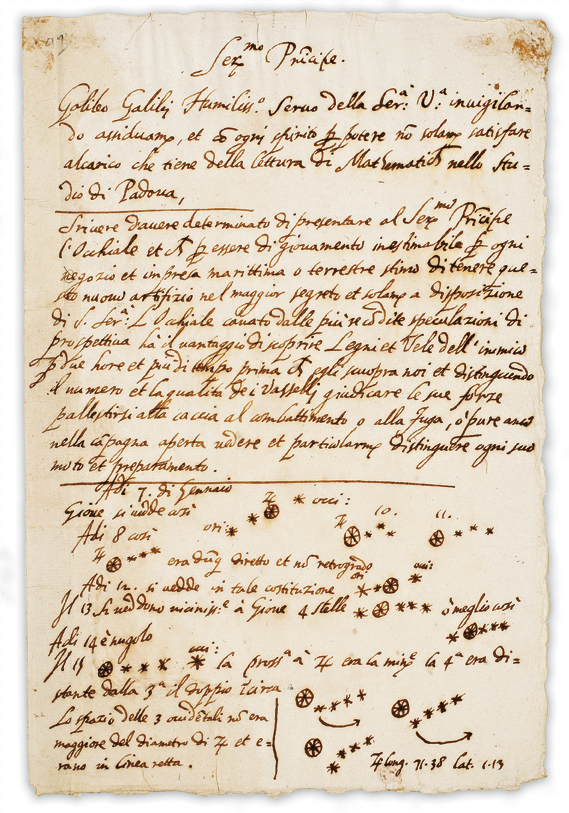 99
Ser.mo Prīcipe.
Galileo Galilei Humiliss.o Seruo della Ser.a V.a inuigilan-
do assiduam.te, et cō ogni spirito p potere nō solam.te satisfare
alcarico che tiene della lettura di Mathematiche nello Stu-
dio di Padoua,
Scriuere dauere determinato di presentare al Ser.mo Prīcipe
l'Occhiale et che p essere di giouamento inestimabile p ogni
negozio et impresa marittima o terrestre stimo di tenere que-
sto nuouo artifizio nel maggior segreto et solam.te a disposizione
di S. Ser.a L'Occhiale cauato dalle più recōdite speculazioni di
prospettiua ha il uantaggio di scoprire Legni et Vele dell'inimico
p due hore et più di tempo prima che egli scuopra noi et distinguendo
il numero et la qualita de i Vasselli giudicare le sue forze
pallestirsi alla caccia al combattimento o alla fuga, o pure anco
nella cāpagna aperta uedere et particolarm.te distinguere ogni suo
moto et preparamento.
Adi 7. di Gennaio
Gioue si uedde così ♃ occi:
Adi 8 così ori: ♃ 10. 11.
♃ era dūq diretto et nō retrogrado
Adi 12. si uedde in tale costituzione ori occi:
Il 13 si ueddono uiciniss.e à Gioue 4 stelle ò meglio così
Adi 14 è nugolo
Il 15 occi: la pross.a à ♃ era la min.e la 4.a era di-
stante dalla 3.a il doppio Icirca
Lo spazio delle 3 occidētali nō era
maggiore del diametro di ♃ et e-
rano in linea retta.
♃ long. 71.38 Lat. 1.13